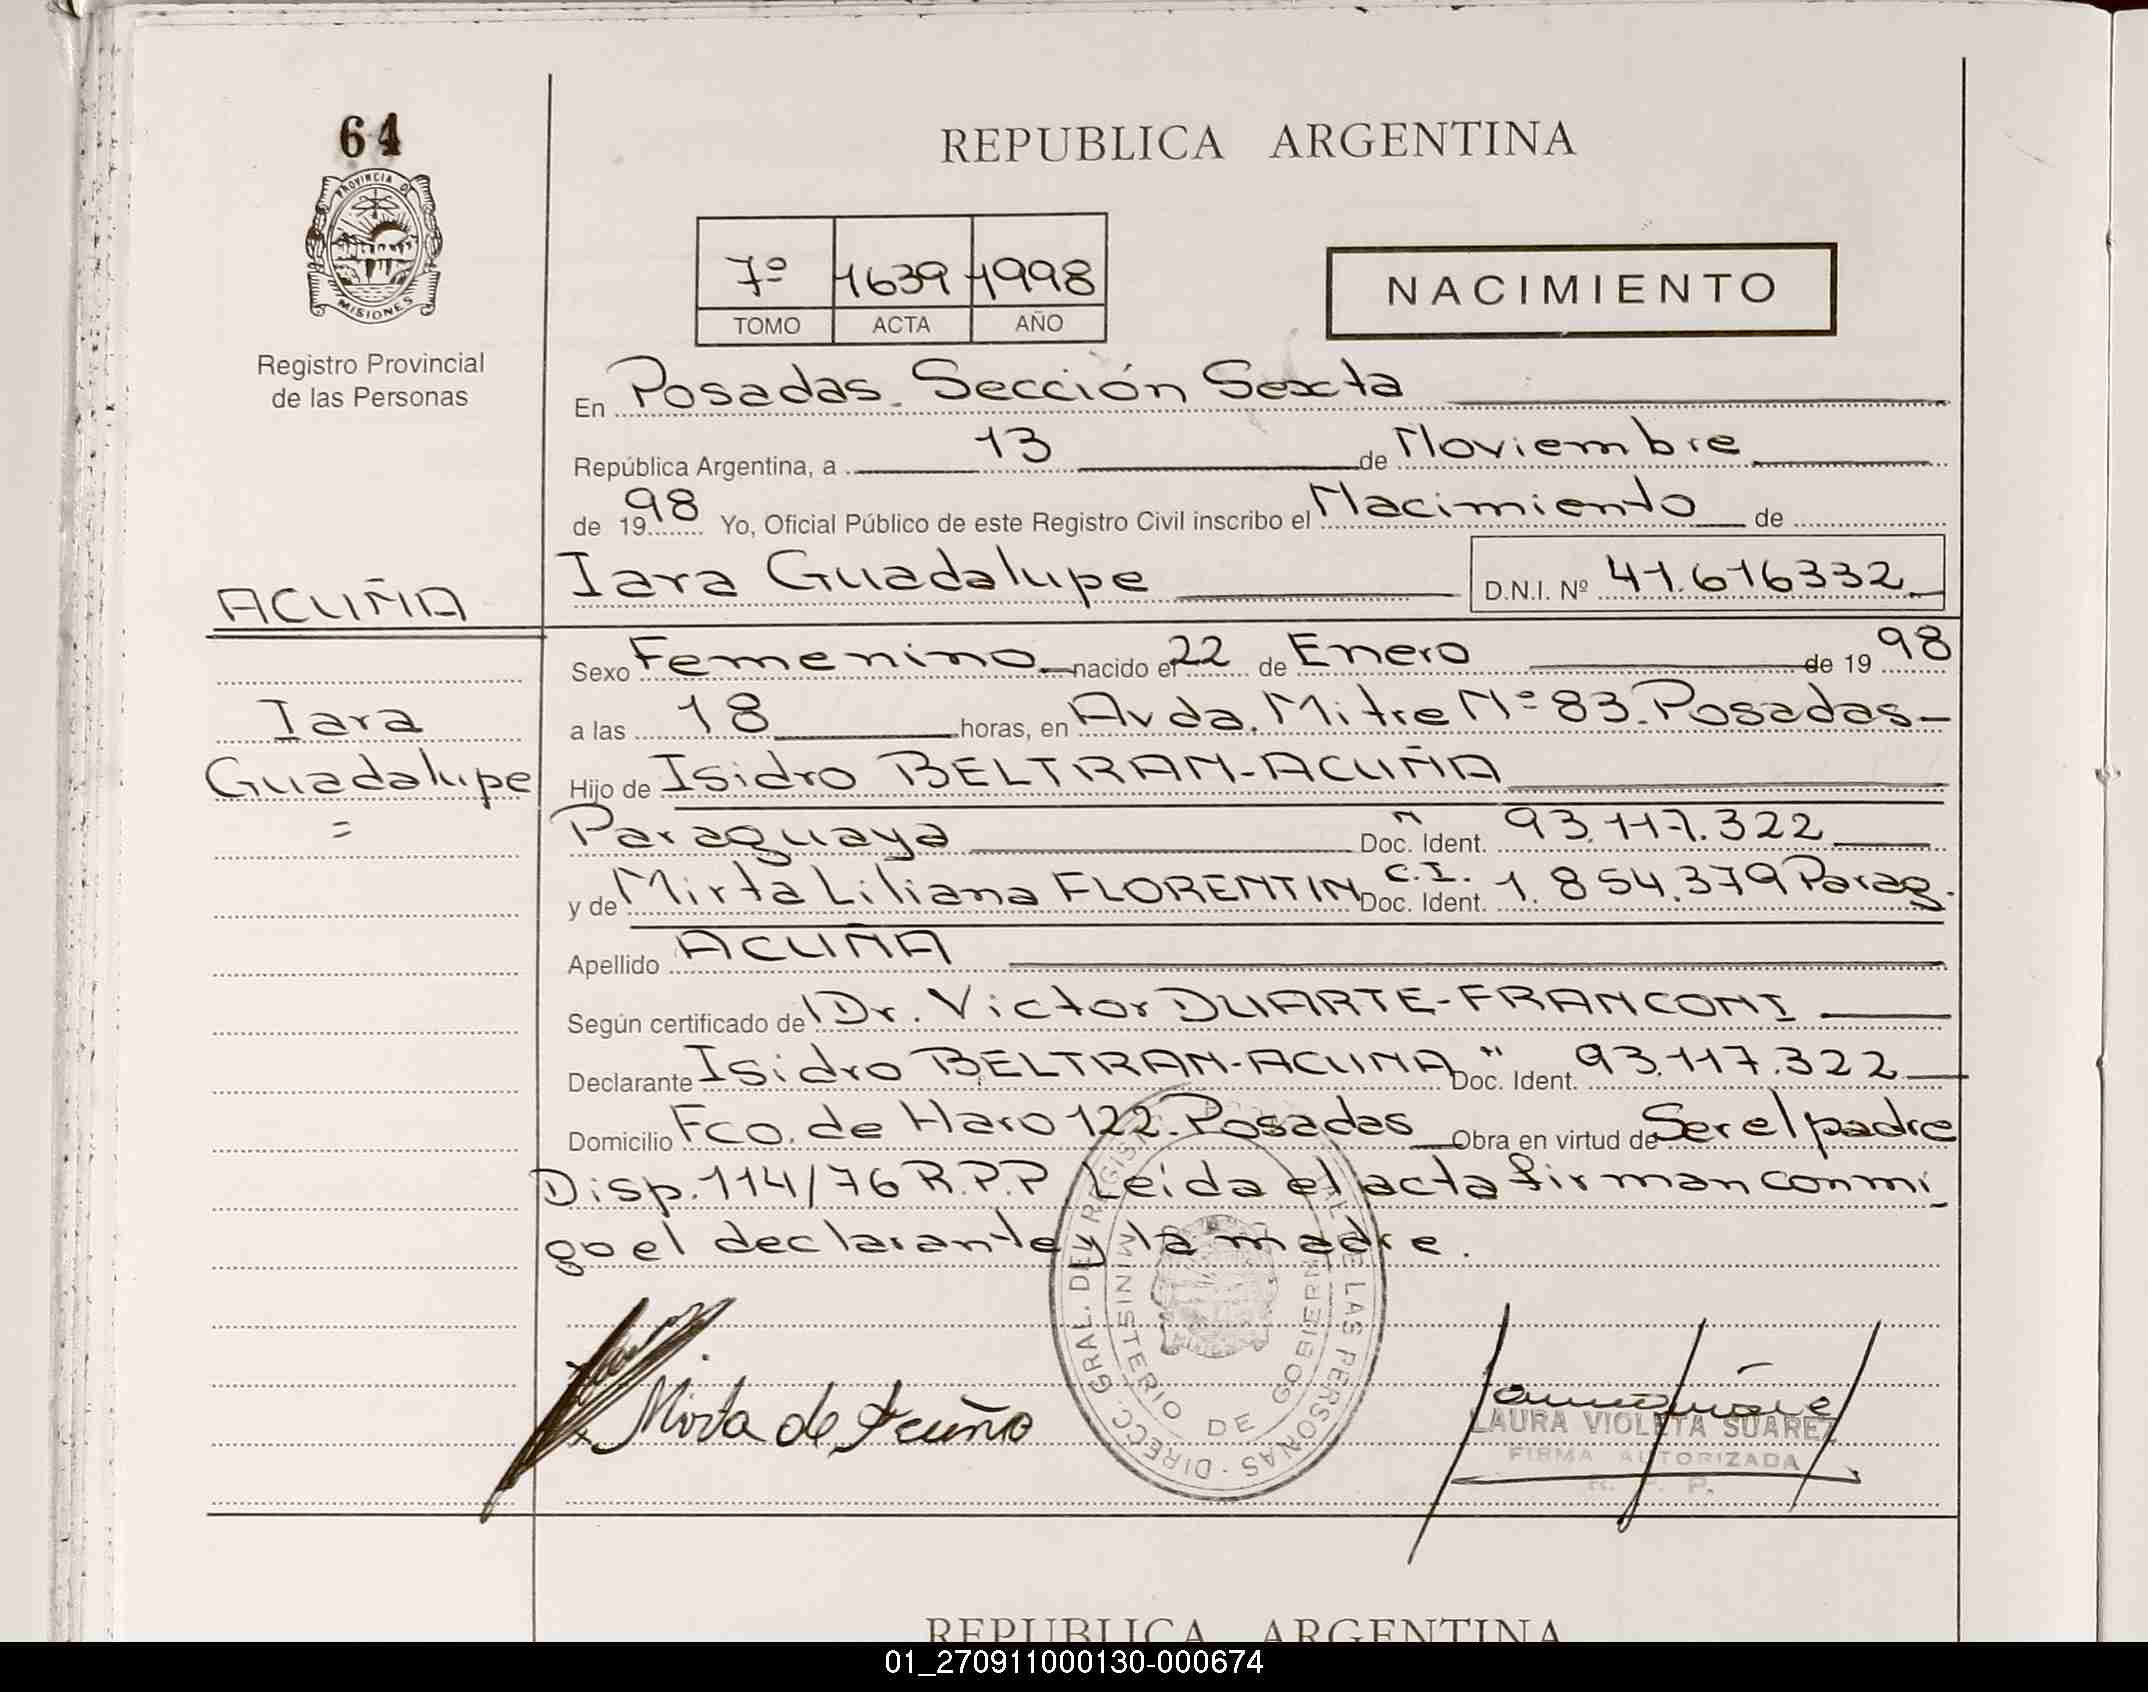 64
PROVINCIA DE
MISIONES
Registro Provincial
de las Personas
REPUBLICA ARGENTINA
7º 1639 1998
TOMO ACTA AÑO
NACIMIENTO
En Posadas. Sección Sexta
República Argentina, a 13 de Noviembre
de 1998 Yo, Oficial Público de este Registro Civil inscribo el Nacimiento de
Iara Guadalupe D.N.I. Nº 41.616332
ACUÑA
Iara
Guadalupe
=
Sexo Femenino nacido el 22 de Enero de 1998
a las 18 horas, en Avda. Mitre Nº 83. Posadas-
Hijo de Isidro BELTRAN-ACUÑA
Paraguaya Doc. Ident. 93.117.322
y de Mirta Liliana FLORENTIN C.I. Doc. Ident. 1.854.379 Parag.
Apellido ACUÑA
Según certificado de Dr. Victor DUARTE-FRANCONI
Declarante Isidro BELTRAN-ACUÑA " Doc. Ident. 93.117.322
Domicilio Fco. de Haro 122. Posadas Obra en virtud de Ser el padre
Disp. 114/76 R.P.P Leída el acta firman conmi
go el declarante y la madre.
Mirta de Acuña
DIRECC. GRAL. DEL REGIST DE LAS PERSONAS
MINISTERIO DE GOBIERN
LAURA VIOLETA SUAREZ
FIRMA AUTORIZADA
R. P. P.
REPUBLICA ARGENTINA
01_270911000130-000674